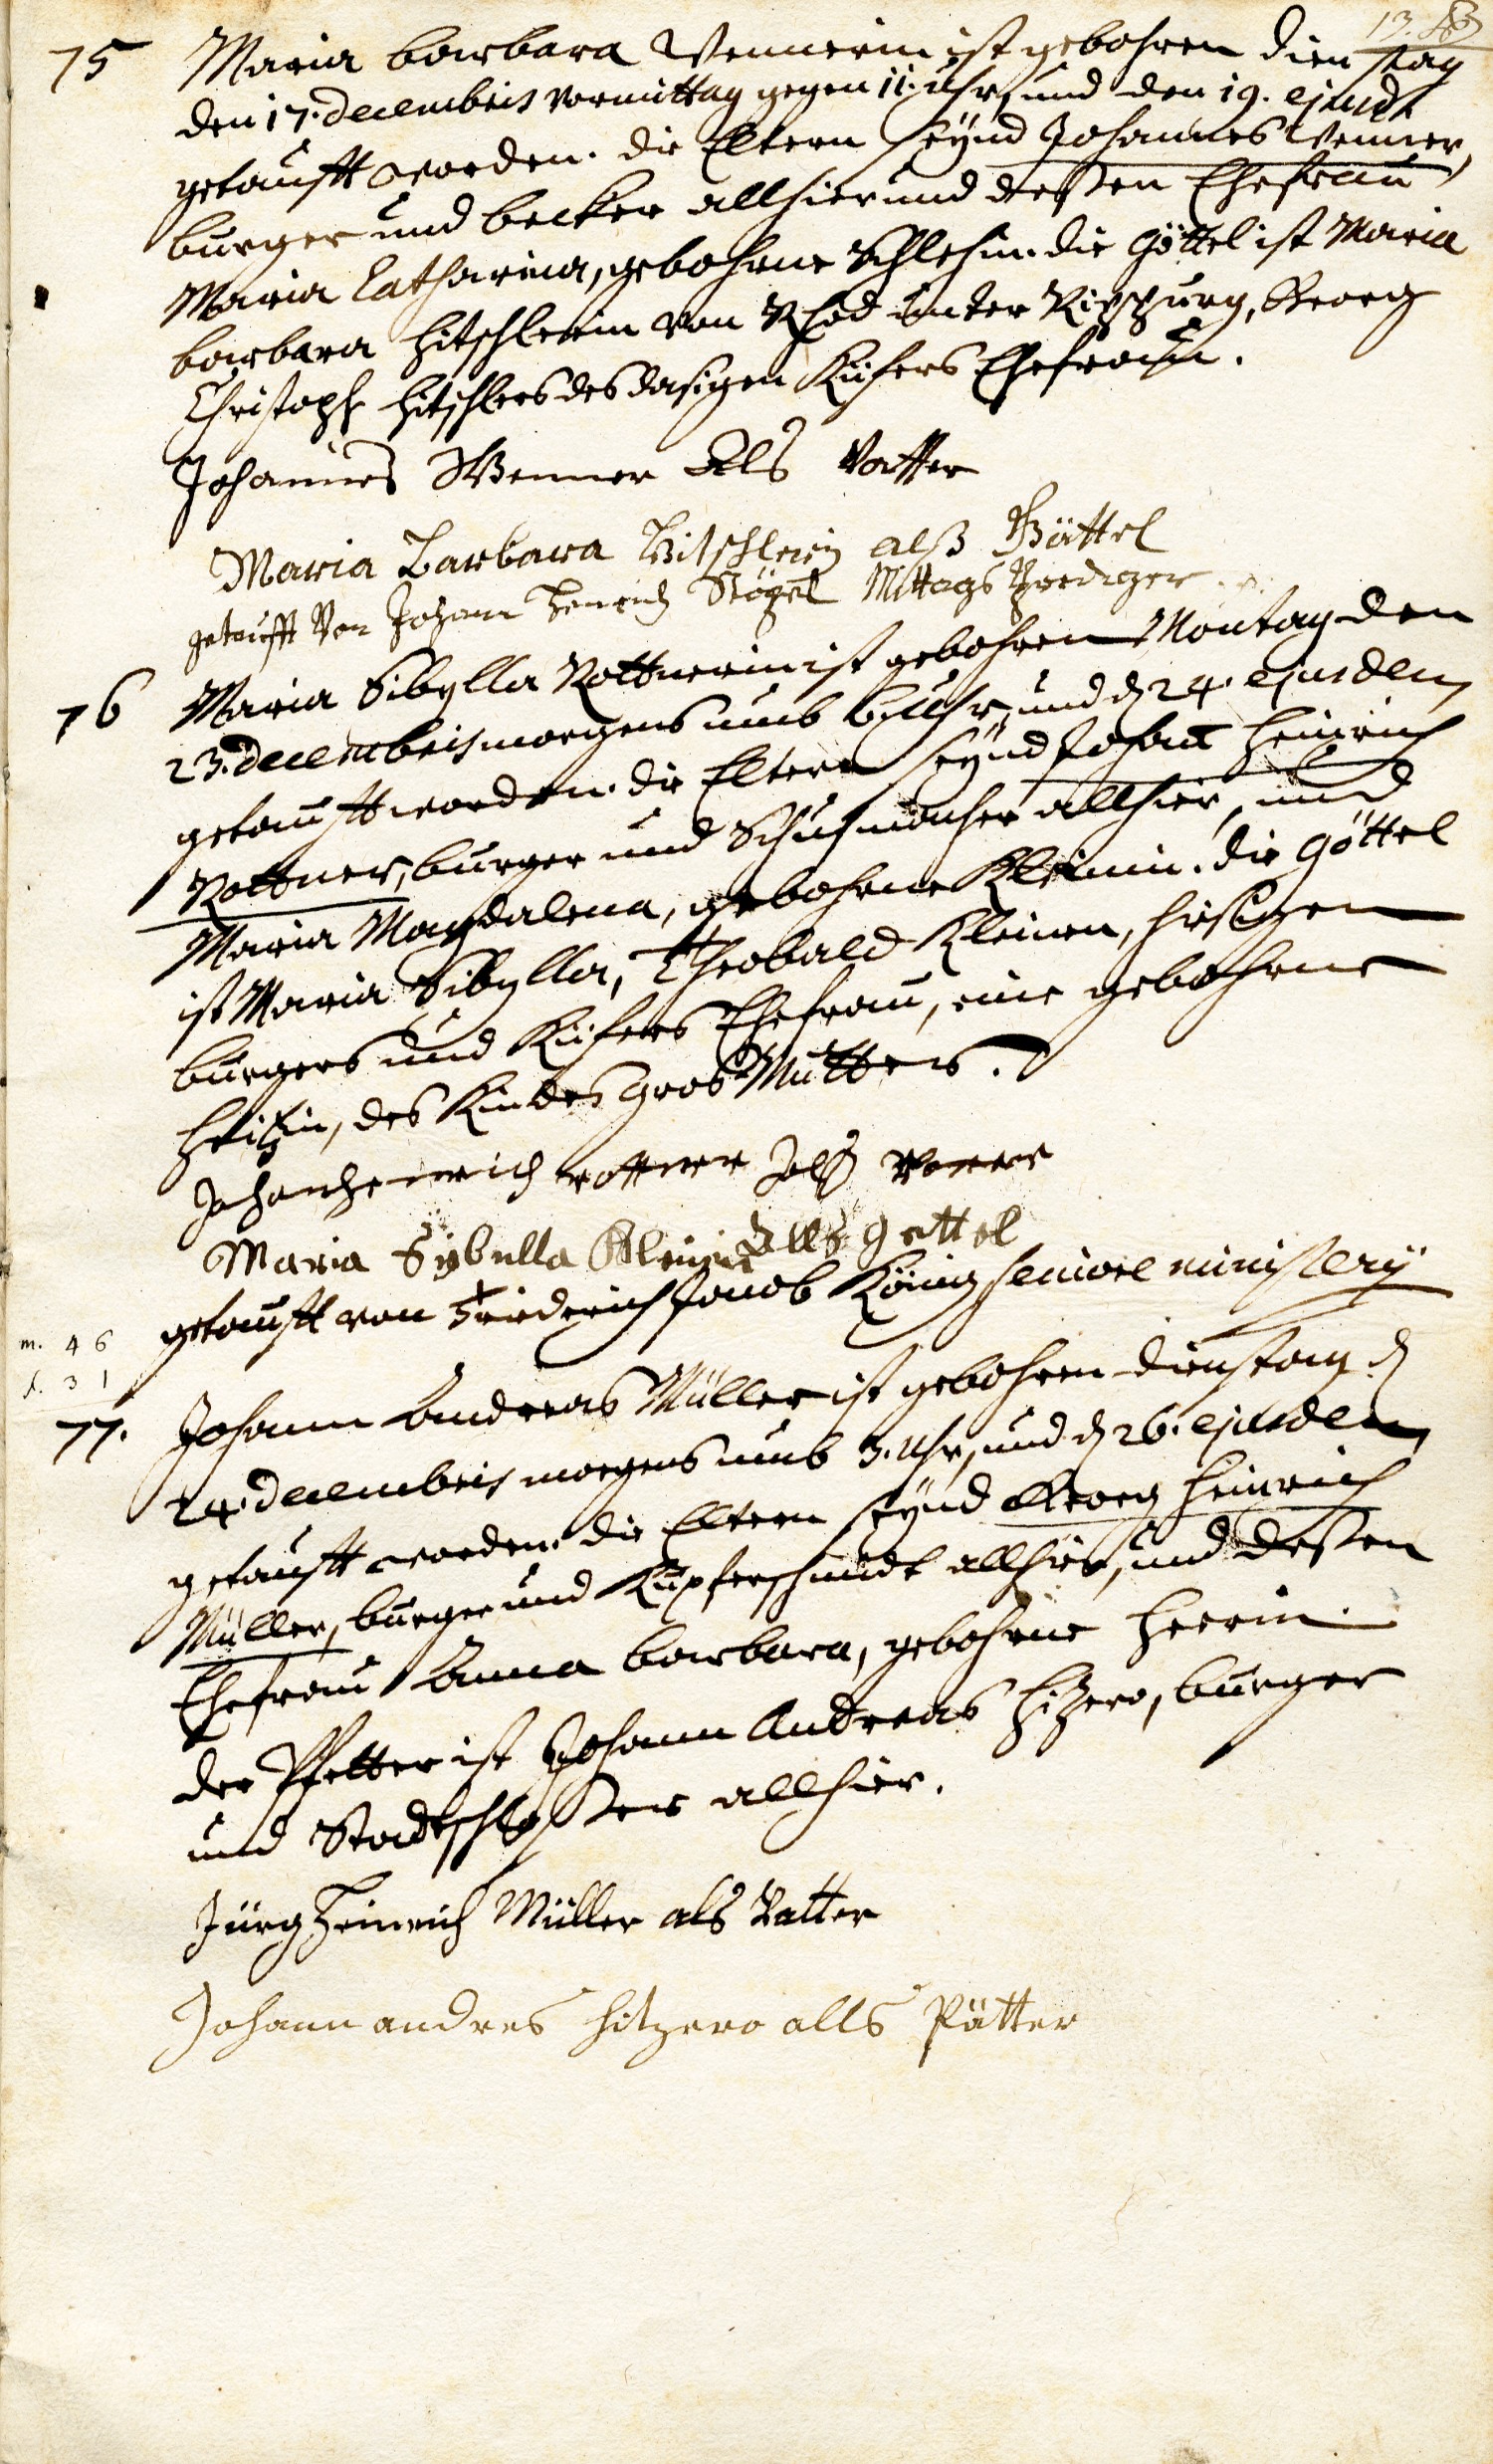 13.
75 Maria Barbara Wennerin ist gebohren Dienstag
den 17. Decembris vormittag gegen 11. uhr, und den 19. ejusd.
getaufft worden. die Eltern seynd Johannes Wenner,
burger und becker allhier und deßen Ehefrau
Maria Catharina, gebohrne die Göttel ist Maria
Barbara Hitschlerin von Rhod unter Rippurg, Georg
Christoph Hitschlers des dasigen Küfers Ehefrau.
Johannes Wenner Als Vatter
Maria Barbara Hitschlerin alß Göttel
getaufft Von Johann Henrich Mittags Prediger.
76 Maria Sibylla Rottnerin ist gebohren Montag den
23. Decembris morgens umb 6. uhr, und d 24. ejusdem
getaufft worden. die Eltern seynd Johann Heinrich
Rottner, burger und Schuhmacher allhier, und
Maria Magdalena, gebohrne Kleinin. die Göttel
ist Maria Sibylla, Theobald Kleinen, hiesigen
burgers und Küfers Ehefrau, eine gebohrne
des Kindes Gros Mutter.
Johan henrich rottner Alß Vatter
Maria Sybulla Kleinin Alls gettel
getaufft von Friderich Jacob König seniore ministerij
m. 46
f. 31
77. Johann Andreas Müller ist gebohren Dienstag d
24. Decembris morgens umb 3. uhr, und d 26. ejusdem
getaufft worden. die Eltern seynd Georg Heinrich
Müller, burger und Kupferschmidt allhier, und deßen
Ehefrau Anna Barbara, gebohrne Herrin.
der Pfetter ist Johann Andreas Hizero, burger
und Stadtschloßer allhier.
Jürg Heinrich Müller als Vatter
Johann andres hitzero alls Pätter